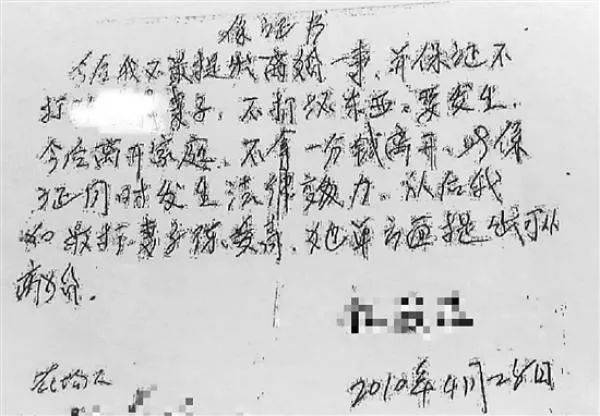 保证书
今后我不敢提出离婚一事，并保证不
打 妻子，不打坏东西，要发生，
今后离开家庭，不拿一分钱离开，此保
证同时发生法律效力，从后我
如 妻子 ，她单方面提出可以
离婚。
2010年4月28日